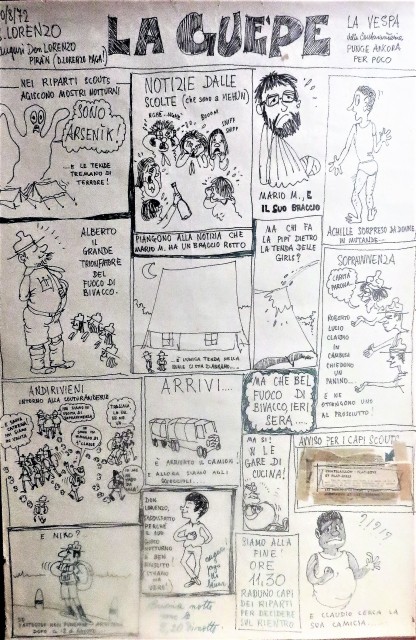 10/8/72
S. LORENZO
auguri Don LORENZO
PIRÀN (D. LORENZO PAGA!)
LA GUÊPE
LA VESPA
PUNGE ANCORA
PER POCO
NEI RIPARTI SCOUTS
AGISCONO MOSTRI NOTTURNI
SONO
ARSENIK!
... E LE TENDE
TREMANO DI
TERRORE!
NOTIZIE DALLE
SCOLTE (che sono a MEHUN)
SNIFF
SNIFF
PIANGONO ALLA NOTIZIA CHE
MARIO M. HA UN BRACCIO ROTTO
MARIO M., E
IL SUO BRACCIO
ACHILLE SORPRESO DA DONNE
IN MUTANDE...
ALBERTO
IL
GRANDE
TRIONFATORE
DEL
FUOCO DI
BIVACCO.
È L'UNICA TENDA NELLA
MA CHI FA
LA PIPÌ DIETRO
LA TENDA DELLE
GIRLS?
SOPRAVVIVENZA
CARITÀ
PARDNA.
ROBERTO
LUCIO
CLAUDIO
IN
CÀMBUSA
CHIEDONO
UN
PANINO...
E NE
OTTENGONO UNO
AL PROSCIUTTO!
ANDIRIVIENI
INTORNO ALLA COUTURANDERIE
ARRIVI....
È ARRIVATO IL CAMION
E ALLORA SIAMO AGLI
SGOCCIOLI.
MA CHE BEL
FUOCO DI
BIVACCO, IERI
SERA....
MA SÌ!
LE
GARE DI
CUCINA!
AVVISO PER I CAPI SCOUTS
E NIRO?
DON
LORENZO,
SODDISFATTO
PERCHÈ
IL SUO
GIOCO
NOTTURNO
È BEN
RIUSCITO
SIAMO ALLA
FINE!
ORE
11,30
RADUNO CAPI
DEI RIPARTI
PER DECIDERE
SUL RIENTRO
?!?!?
E CLAUDIO CERCA LA
SUA CAMICIA...